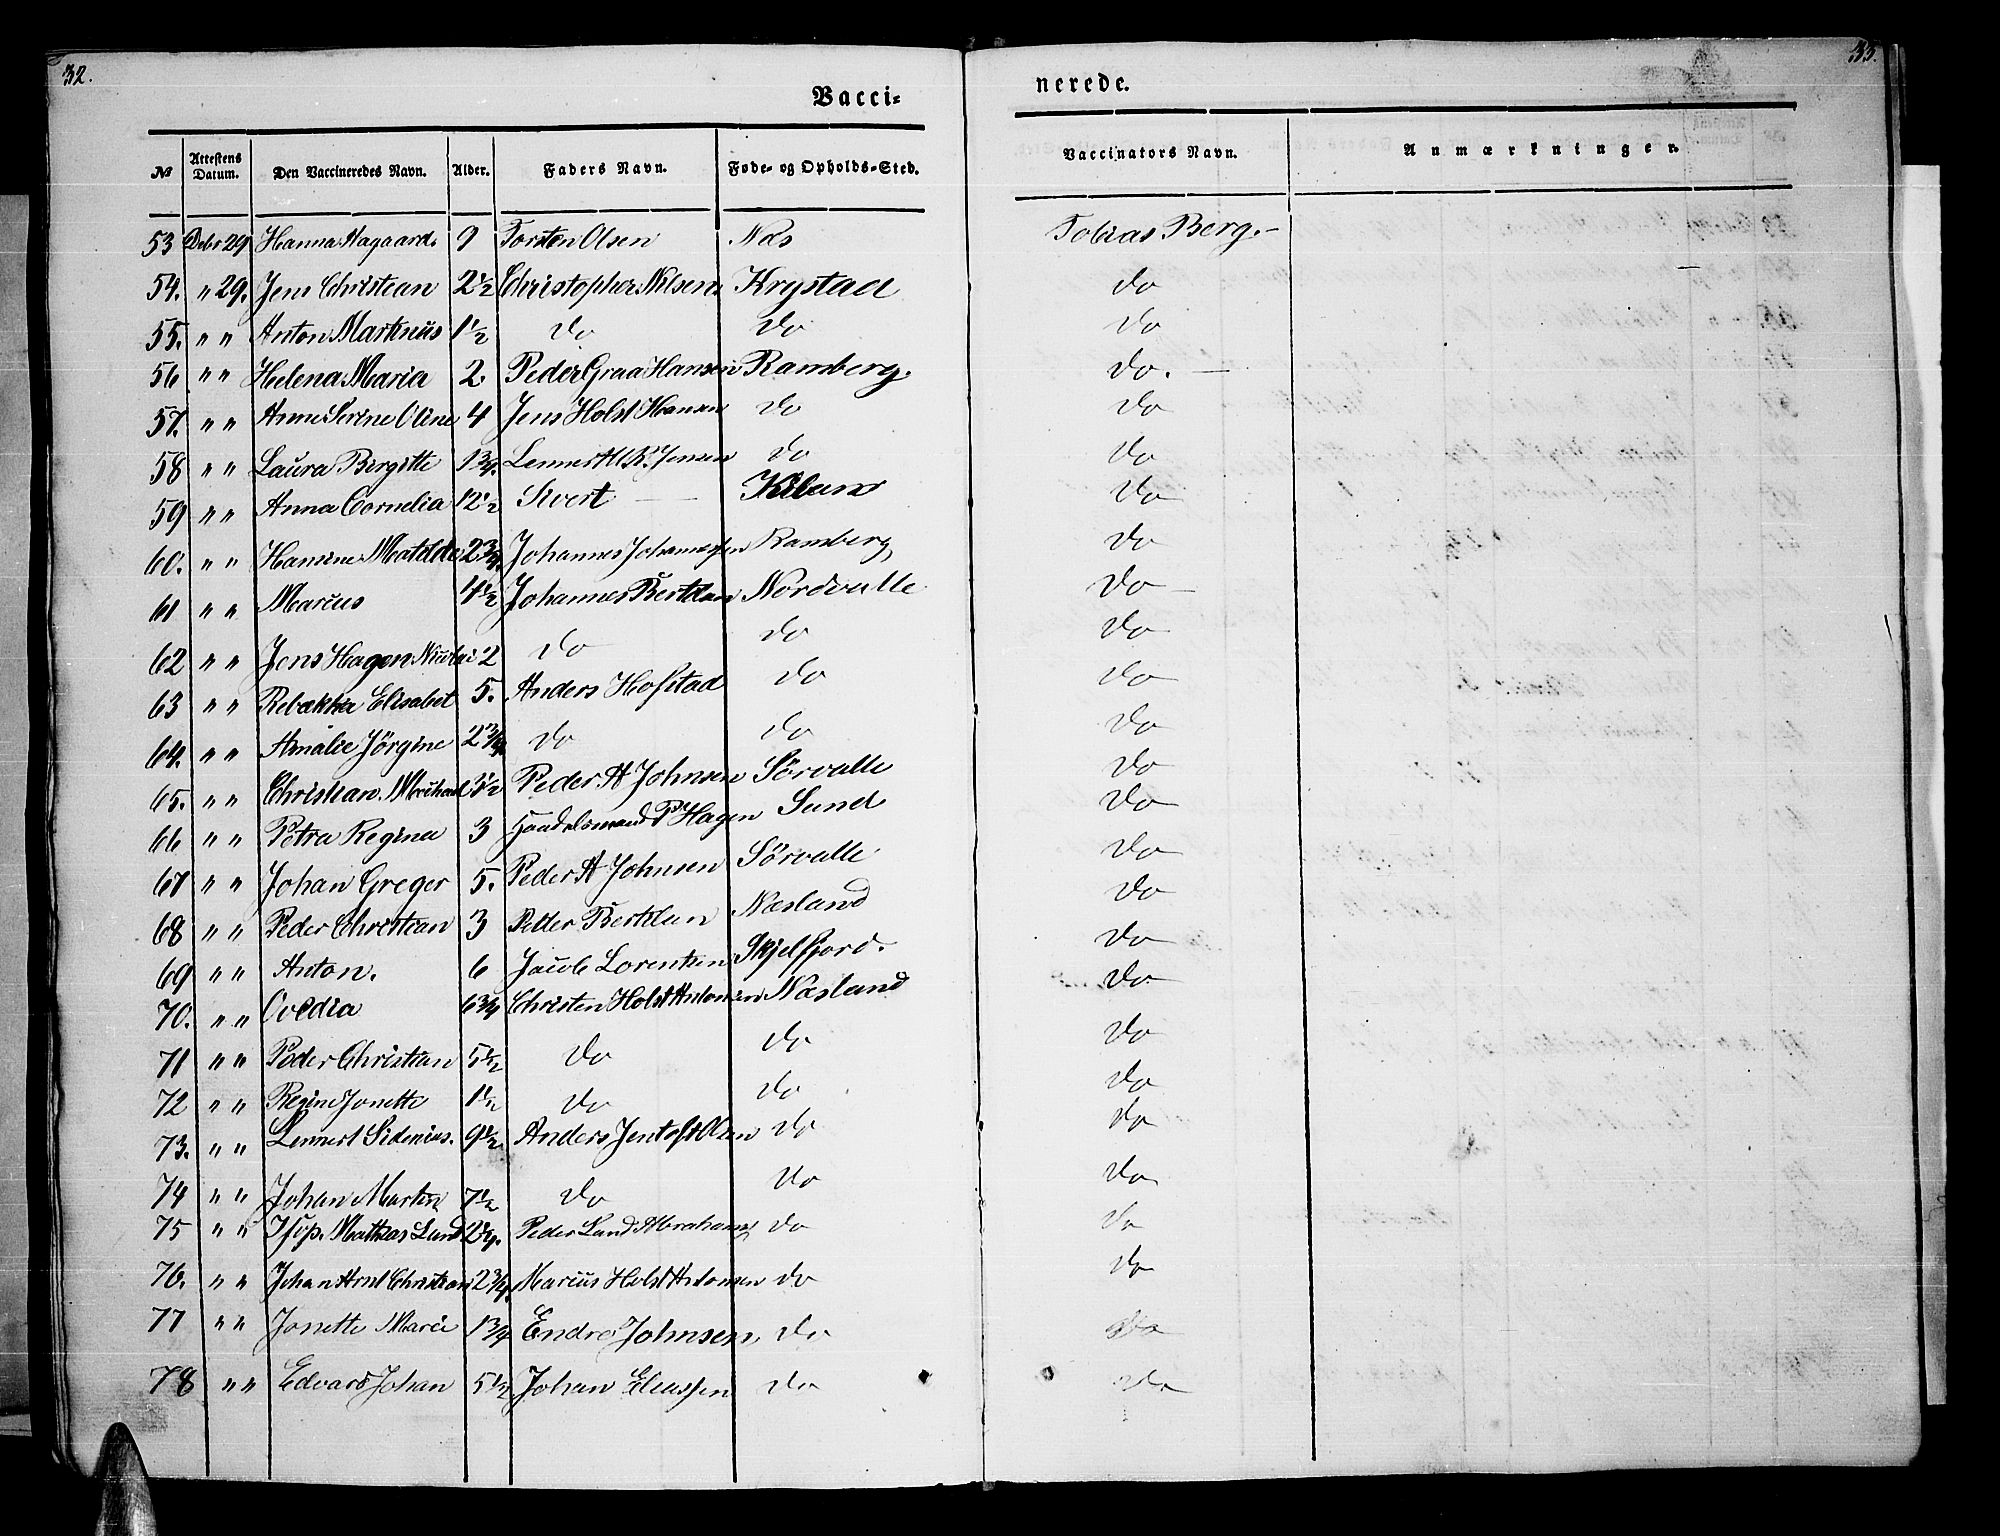 32.
33.
Vacci- nerede.
№ Attestens Datum. Den Vaccineredes Navn. Alder. Faders Navn. Føde- og Opholds-Sted. Vaccinators Navn. Anmærkninger.
53 Debr 29 Hanna Aagaard 9 Torsten Olsen Næs Tobias Berg.-
54. " 29. Jens Christian 2 1/2 Christopher Nilsen Krystad do
55. " " Anton Martinus 1 1/2 do do do
56 " " Helena Maria 2. Peder Graa Hansen Ramberg. do.
57. " " Anne Serine Oline 4 Jens Holst Hansen do do
58 " " Laura Birgitte 1 3/4. Lennert Jensen do do
59 " " Anna Cornelia 12 1/2 Sivert do
60. " " Hansine Matilde 2 3/4. Johannes Johannessen Ramberg do
61 " " Marius 4 1/2 Johannes Bertelsen Nordvalle do
62 " " Jens Hagen Nicolai 2 do do do
63 " " Rebækka Elisabet 5. Anders Hofstad do do
64. " " Amalie Jörgine 2 3/4 do do do
65. " " Christian Michael 3 1/2 Peder A Johnsen Sörvalle do
66 " " Petra Regina 3 Handelsmand P Hagen Sund do
67 " " Johan Greger 5. Peder A Johnsen Sörvalle do
68 " " Peder Christian 3 Petter Bertelsen Næsland do
69 " " Anton. 6 Jacob Lorentsen Skjelfjord. do
70. " " Ovedia 6 3/4 Christen Holst Antonsen Næsland do
71 " " Peder Christian 5 1/2 do do do
72 " " Regine Jonette 1 1/2 do do do
73. " " Lennert Sidenius. 9 1/2. Anders Jentoft Olsen do do
74 " " Johan Martin 7 1/2 do do do
75 " " Mathias Lund Peder Lund Abrahams do do
76. " " Johan Arnt Christian 2 3/4. Marius Holst Antonsen do do
77 " " Jonette Marie 1 3/4 Endre Johnsen do do
78 " " Edvard Johan 5 1/2 Johan Eliassen do do